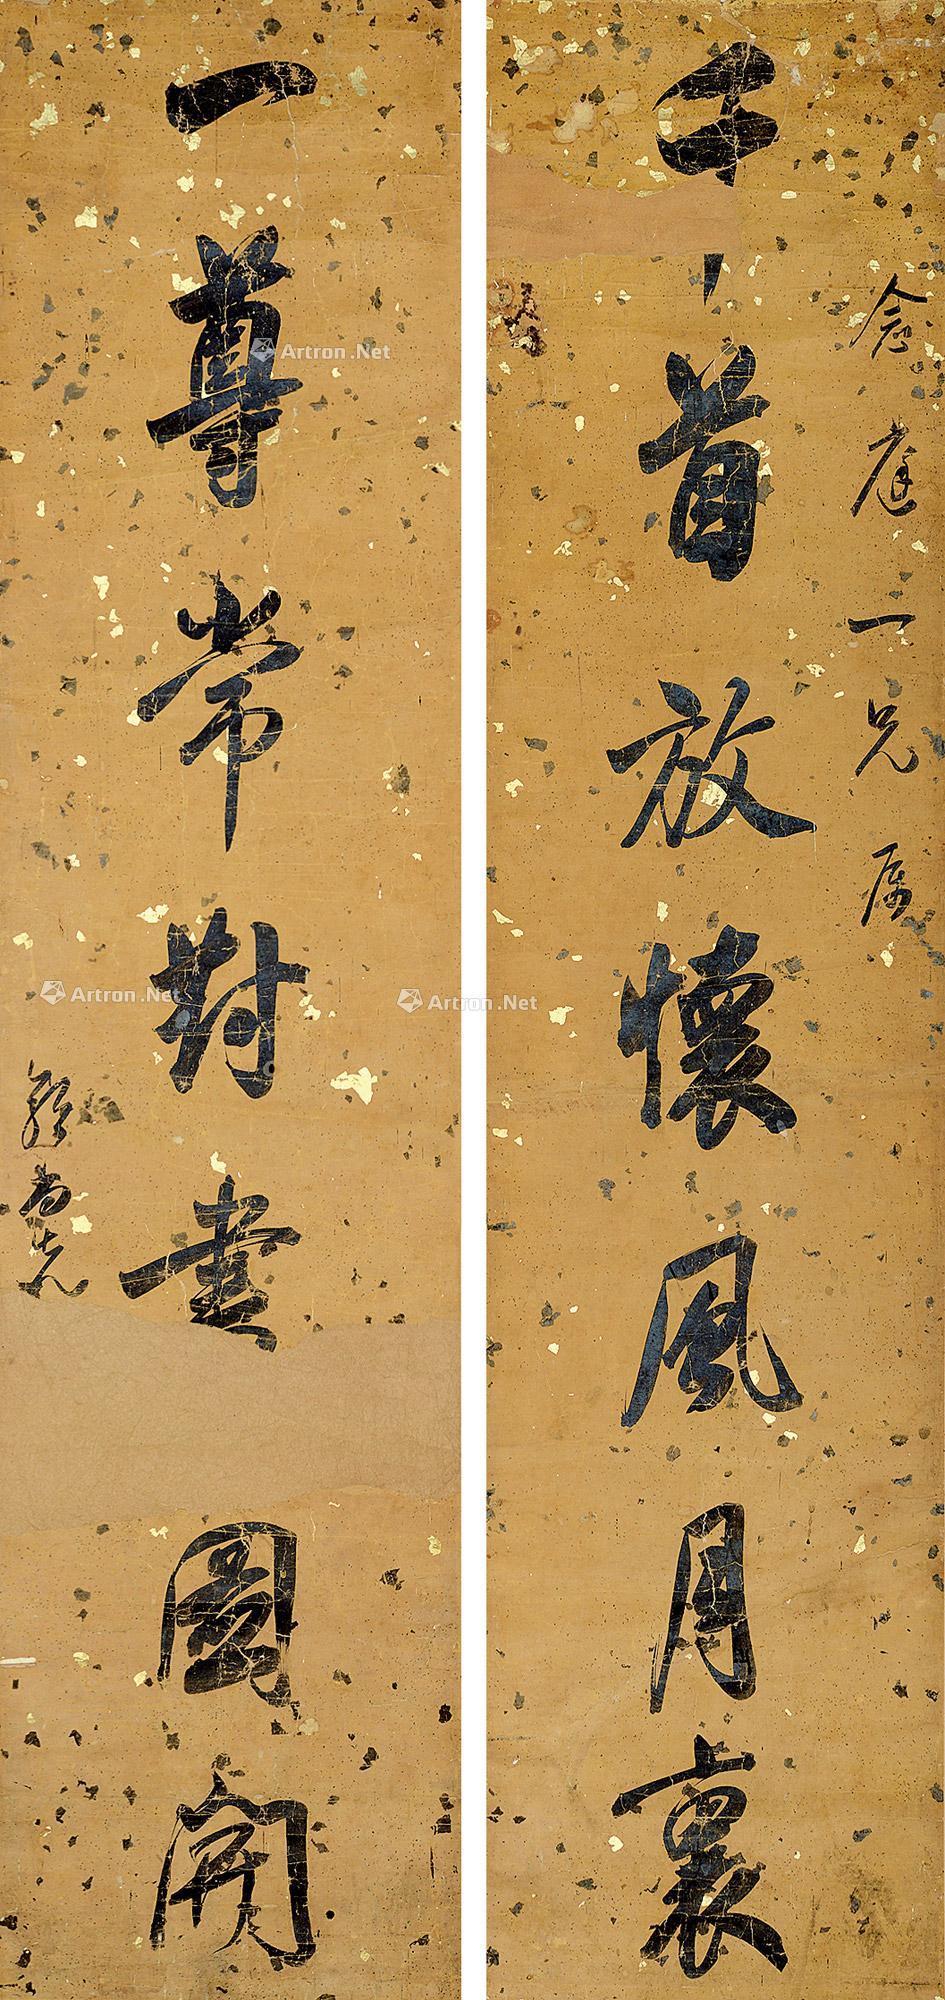 念庭一兄属
千首放懷風月裏
一尊常對畫圖開
Artron.Net
Artron.Net
Artron.Net